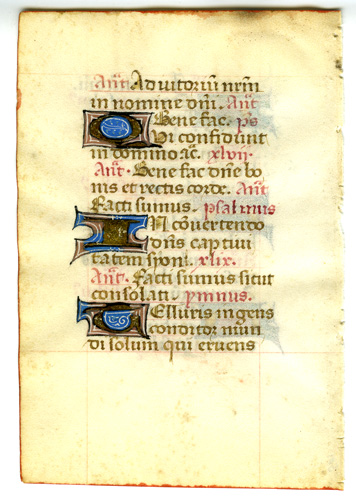 Añt Adiutoriũ nr̃m
in nomine dñi. Añt
Bene fac. ps
Qui confidunt
in domino sc̃. xlvii.
Añt. Bene fac dñe bo
nis et rectis corde. Añt
Facti sumus. psalmus
IN cõuertendo
dñs captiui
tatem syon. xlix.
Añt. Facti sumus sicut
consolati. ymnus.
Telluris ingens
conditor mun
di solum qui eruens